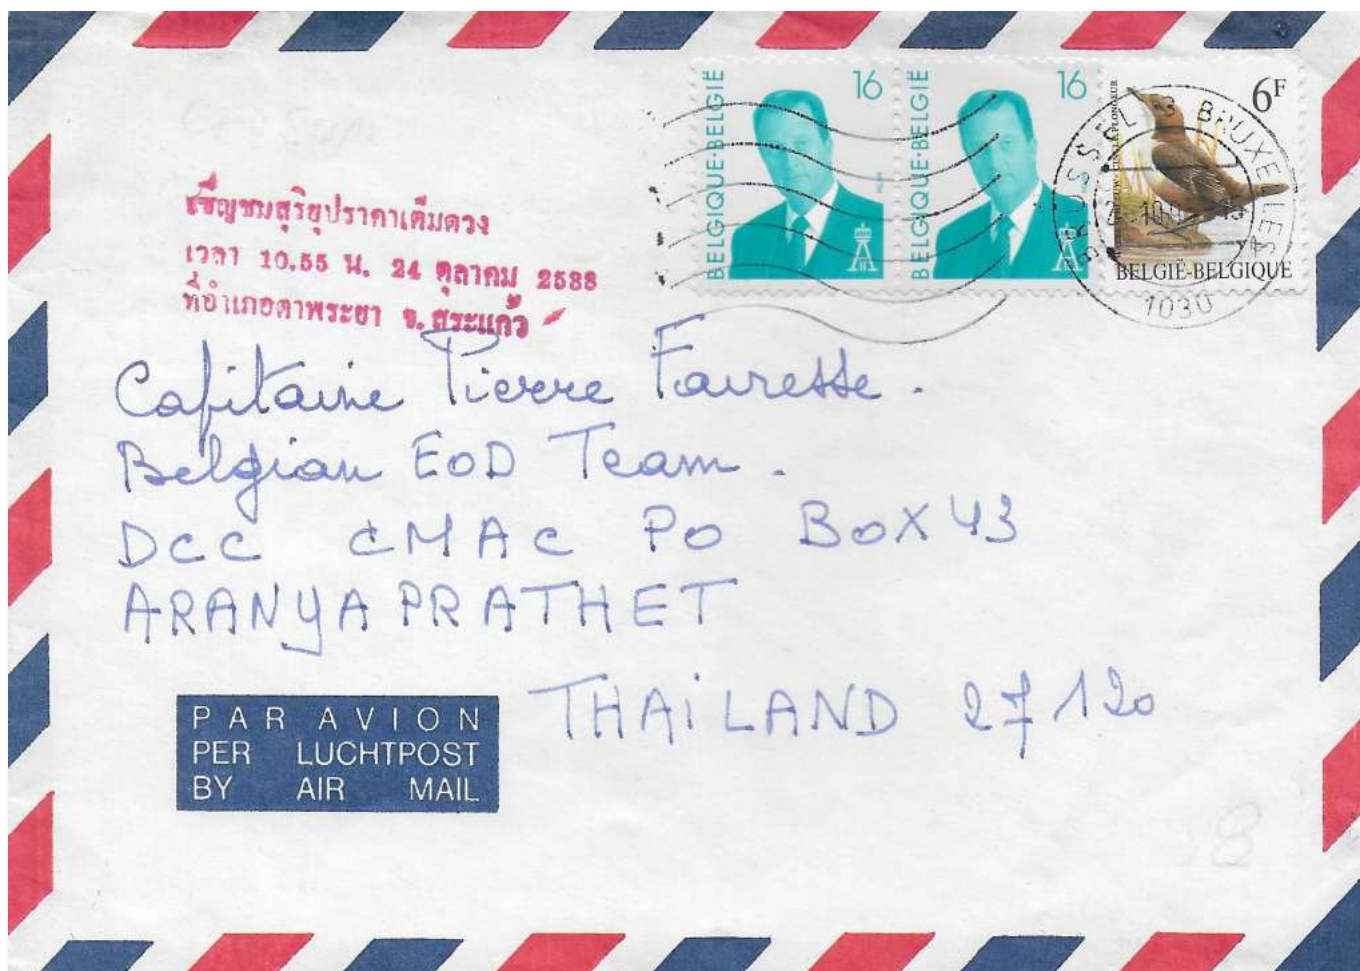 BELGIQUE-BELGIË
16
BELGIQUE-BELGIË
16
6F
BELGIË-BELGIQUE
BRUSSEL BRUXELLES
1030
เชิญชมสุริยุปราคาเต็มดวง
เวลา 10.55 น. 24 ตุลาคม 2538
ที่อำเภอตาพระยา จ.สระแก้ว
Capitaine Pierre Fauresse.
Belgian EOD Team.
DCC CMAC PO BOX 43
ARANYAPRATHET
THAiLAND 27120
PAR AVION
PER LUCHTPOST
BY AIR MAIL